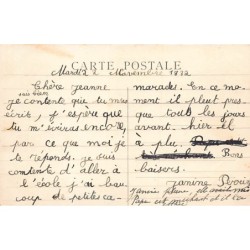 CARTE POSTALE
Mardi 2 Novembre 1932
Chère Jeanne
suis bien
je contente que tu m'as
écrit, j'espère que
tu m'écriras encore,
par ce que moi je
te réponds. je suis
contente d'aller à
l'école j'ai beau
coup de petites ca-
marades. En ce mo-
ment il pleut pres
que tous les jours
avant hier il
a plu.
Bons
baisers.
Janine